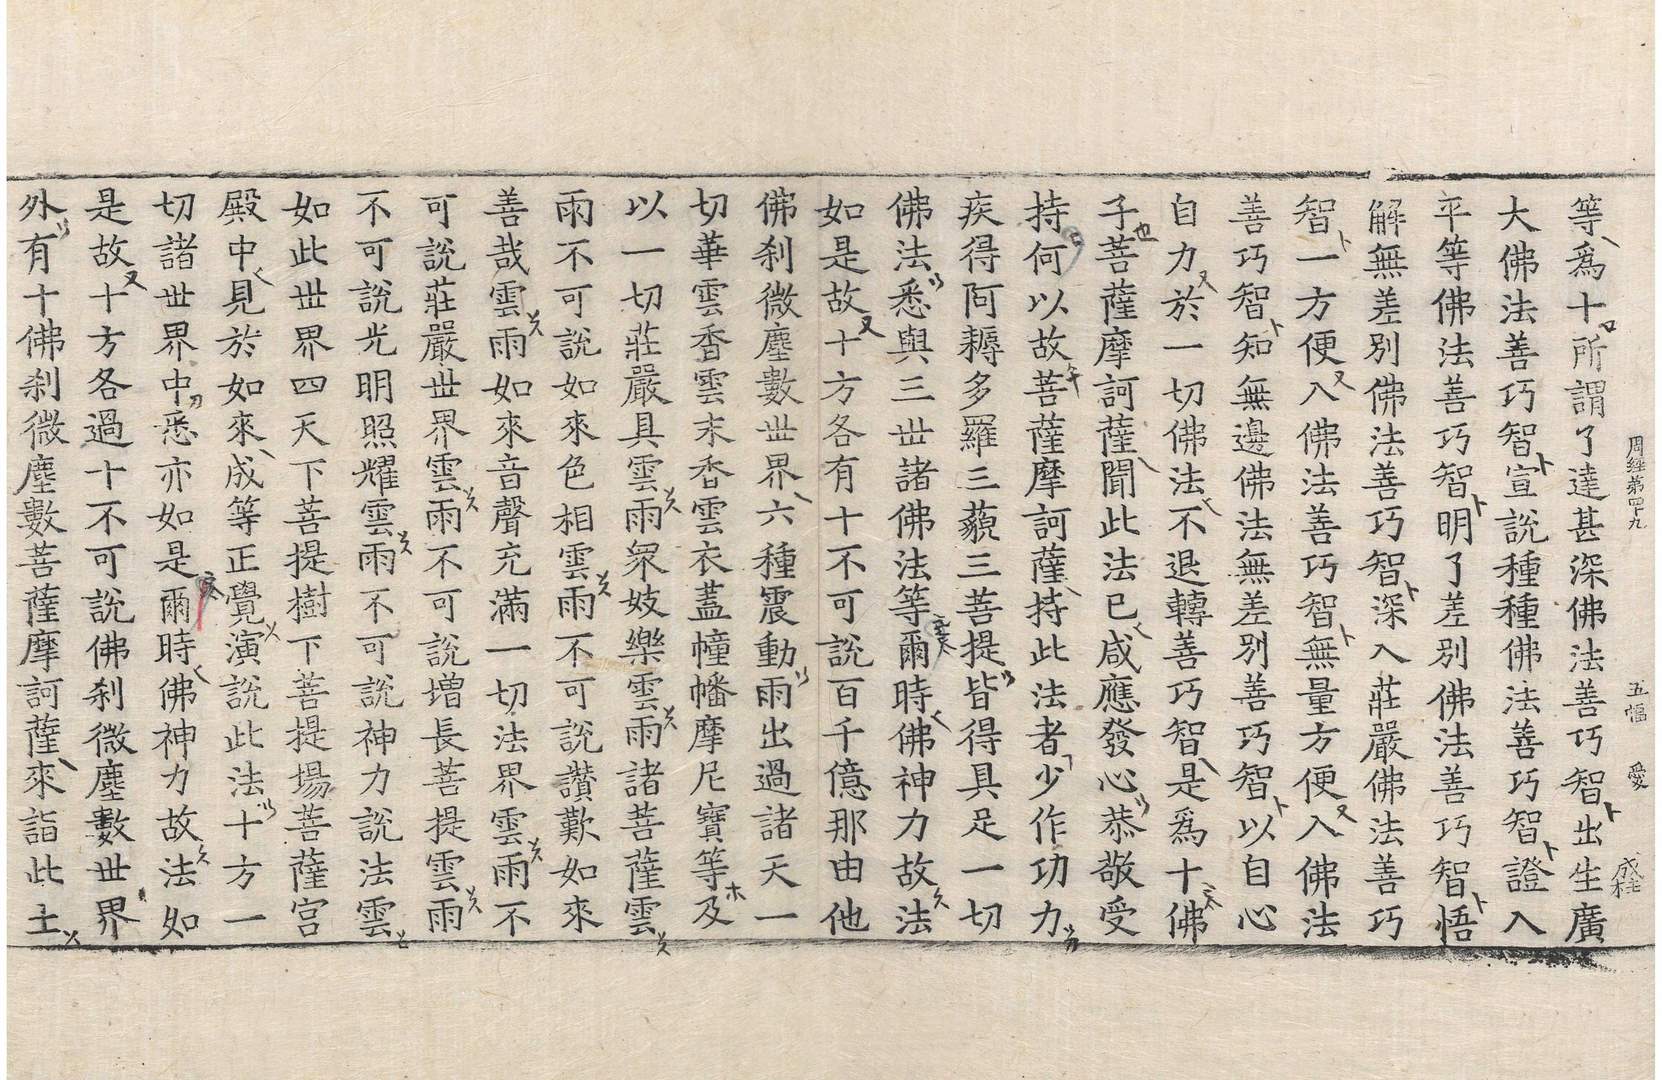 周經第四十九　五幅　愛　成柱
等爲十所謂了達甚深佛法善巧智出生廣
大佛法善巧智宣說種種佛法善巧智證入
平等佛法善巧智明了差別佛法善巧智悟
解無差別佛法善巧智深入莊嚴佛法善巧
智一方便入佛法善巧智無量方便入佛法
善巧智知無邊佛法無差別善巧智以自心
自力於一切佛法不退轉善巧智是爲十佛
子菩薩摩訶薩聞此法已咸應發心恭敬受
持何以故菩薩摩訶薩持此法者少作功力
疾得阿耨多羅三藐三菩提皆得具足一切
佛法悉與三世諸佛法等爾時佛神力故法
如是故十方各有十不可說百千億那由他
佛刹微塵數世界六種震動雨出過諸天一
切華雲香雲末香雲衣蓋幢幡摩尼寶等及
以一切莊嚴具雲雨衆妓樂雲雨諸菩薩雲
雨不可說如來色相雲雨不可說讚歎如來
善哉雲雨如來音聲充滿一切法界雲雨不
可說莊嚴世界雲雨不可說增長菩提雲雨
不可說光明照耀雲雨不可說神力說法雲
如此世界四天下菩提樹下菩提場菩薩宮
殿中見於如來成等正覺演說此法十方一
切諸世界中悉亦如是爾時佛神力故法如
是故十方各過十不可說佛刹微塵數世界
外有十佛刹微塵數菩薩摩訶薩來詣此土